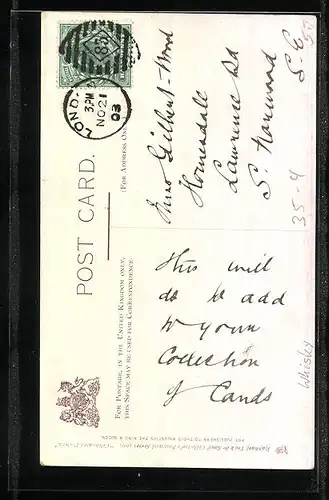 LOND
3.PM
NO 21
03
83
POST CARD.
(FOR ADDRESS ONLY
FOR POSTAGE, IN THE UNITED KINGDOM ONLY,
THIS SPACE MAY BE USED FOR CORRESPONDENCE.
Miss Gilbert-Wood
Homesdale
Lawrence Rd
S. Norwood
S. E
This will
do to add
to your
Collection
of Cards
35-4
50
Whisky
Raphael Tuck & Sons'
ART PUBLISHERS TO THEIR MAJESTIES THE KING & QUEEN.